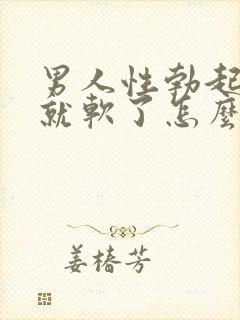 男人性勃起
就軟了怎麼
姜椿芳